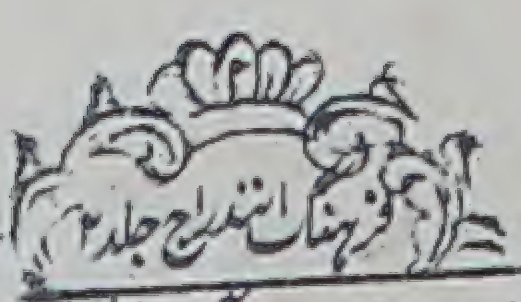 فرهنگ انندراج جلد ۲